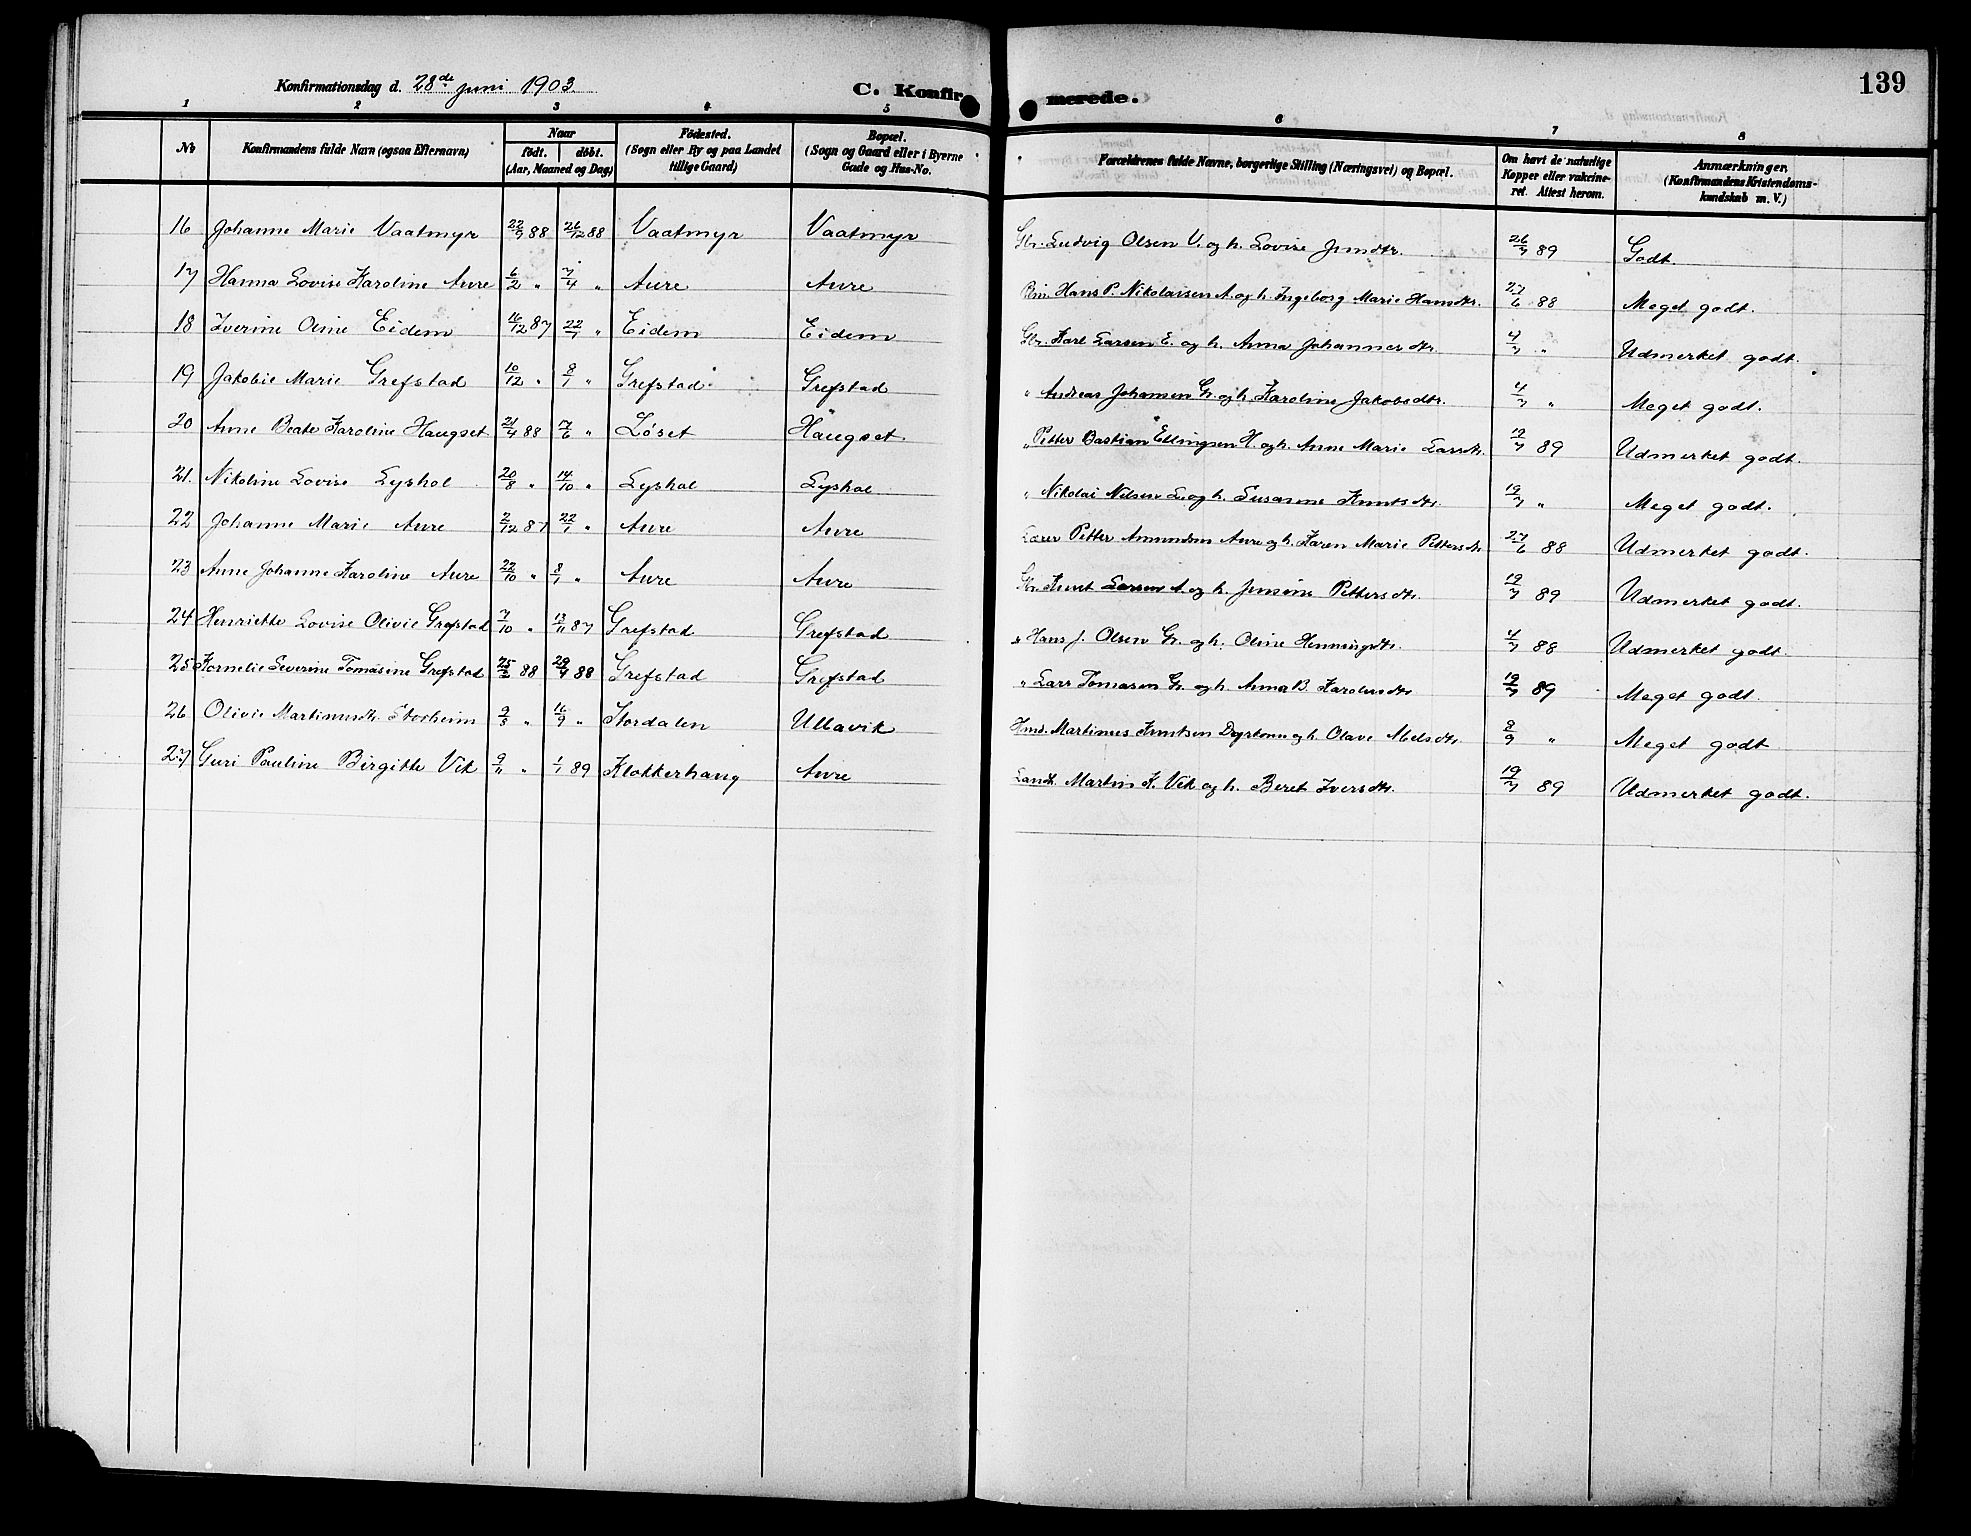 Konfirmationsdag d. 28de Juni 1903. C. Konfir merede. 139
1 2 3 4 5 6 7 8
No Konfirmandens fulde Navn (ogsaa Efternavn) Naar födt. döbt. (Aar, Maaned og Dag) Födested. (Sogn eller By og paa Landet tillige Gaard) Bopæl. (Sogn og Gaard eller i Byerne Gade og Hus-No. Forældrenes fulde Navne, borgerlige Stilling (Næringsvei) og Bopæl. Om havt de naturlige Kopper eller vakcineret. Attest herom. Anmærkninger. (Konfirmandens Kristendomskundskab m. V.)
16 Johanne Marie Vaatmyr 22/7 88 26/12 88 Vaatmyr Vaatmyr Gbr. Ludvig Olsen V. og h. Lovise Jensdtr. 26/7 89 Godt.
17 Hanna Lovise Karoline Aure 6/2 " 7/4 " Aure Aure Hans P. Nikolaisen A. og h. Ingeborg Marie Hansdtr. 27/6 88 Meget godt.
18 Iverine Oline Eidem 16/12 87 22/1 " Eidem Eidem Gbr. Karl Larsen E. og h. Anna Johannesdtr. 4/7 " Udmerket godt.
19 Jakobie Marie Grefstad 10/12 " 8/1 " Grefstad Grefstad " Andreas Johansen G. og h. Karoline Jakobsdtr. 4/7 " Meget godt.
20 Anne Beate Karoline Haugset 21/4 88 7/6 " Löset Haugset. " Petter Bastian Ellingsen H. og h. Anne Marie Larsdtr. 19/7 89 Udmerket godt.
21. Nikoline Lovise Lyshol 20/8 " 14/10 " Lyshol Lyshol " Nikolai Nilsen L. og h. Susanne Knutsdtr. 19/7 " Meget godt.
22 Johanne Marie Aure 2/12 87 22/1 " Aure Aure Lærer Petter Amundsen Aure og h. Karen Marie Pettersdtr. 27/6 88 Udmerket godt.
23 Anne Johanne Karoline Aure 22/10 " 8/1 " Aure Aure Gbr. Knut Larsen A. og h. Jensine Pettersdtr. 19/7 89 Udmerket godt.
24 Henriette Lovise Olivie Grefstad 7/10 " 13/11 87 Grefstad Grefstad " Hans J. Olsen G. og h. Oline Henningsdtr. 4/7 88 Udmerket godt.
25 Kornelie Severine Tomasine Grefstad 25/2 88 29/4 88 Grefstad Grefstad " Lars Tomasen G. og h. Anna B. Karolusdtr 19/7 89 Meget godt.
26 Olivie Martinusdtr. Storheim 9/8 " 16/9 " Stordalen Ullavik Hmd. Martinus Knutsen Dyrkorn og h. Olave Nelsdtr. 8/9 " Meget godt
27 Guri Pauline Birgitte Vik 9/11 " 1/1 89 Klokkerhaug Aure Landh. Martin K. Vik og h. Beret Iversdtr. 19/7 89 Udmerket godt.